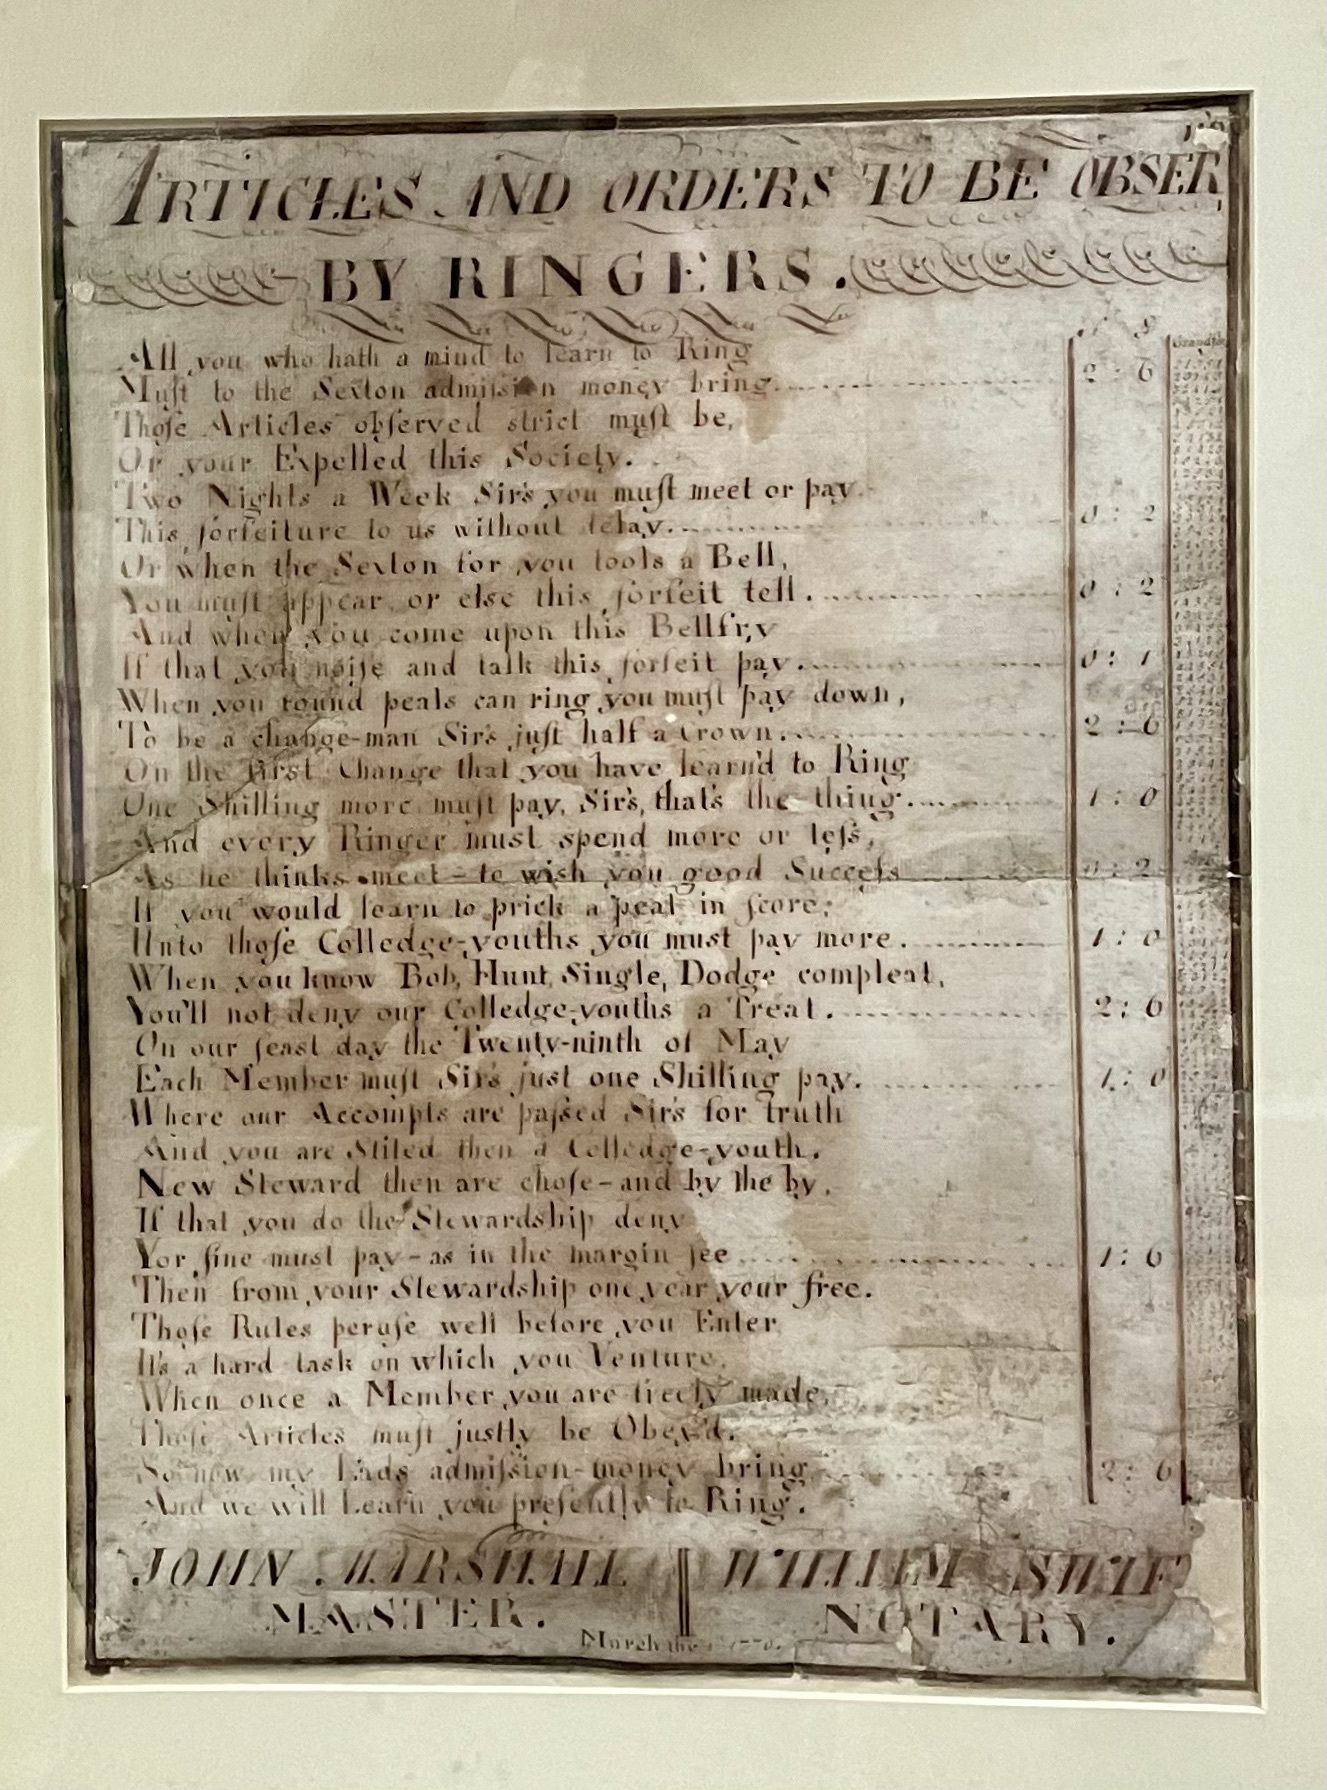 ARTICLES AND ORDERS TO BE OBSER
BY RINGERS.
All you who hath a mind to learn to Ring
Muſt to the Sexton admiſsion money bring. 2 : 6
Thoſe Articles obſerved strict muſt be,
Or your Expelled this Society.
Two Nights a Week Sir's you muſt meet or pay
This forfeiture to us without delay. 0 : 2
Or when the Sexton for you tools a Bell,
You muſt appear or else this forfeit tell. 0 : 2
And when you come upon this Bellfry
If that you noiſe and talk this forfeit pay. 0 : 1
When you round peals can ring you muſt pay down,
To be a change-man Sir's juſt half a Crown. 2 : 6
On the first Change that you have learn'd to Ring
One Shilling more muſt pay, Sir's, that's the thing. 1 : 0
And every Ringer must spend more or leſs,
As he thinks meet - to wish you good Succeſs 0 : 2
If you would learn to prick a peal in ſcore;
Unto thoſe Colledge-youths you must pay more. 1 : 0
When you know Bob, Hunt, Single, Dodge compleat,
You'll not deny our Colledge-youths a Treat. 2 : 6
On our feast day the Twenty-ninth of May
Each Member muſt Sir's just one Shilling pay. 1 : 0
Where our Accompts are paſsed Sir's for truth
And you are Stiled then a Colledge-youth.
New Steward then are choſe - and by the by,
If that you do the Stewardship deny
Yor fine must pay - as in the margin ſee 1 : 6
Then from your Stewardship one year your free.
Thoſe Rules peruſe well before you Enter
It's a hard task on which you Venture,
When once a Member you are freely made,
Thoſe Articles muſt justly be Obey'd.
So now my Lads admiſsion-money bring 2 : 6
And we will Learn you preſently to Ring.
JOHN MARSHALL
MASTER.
WILLIEM SWIF
NOTARY.
March the